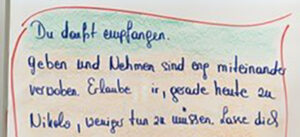 Du darfst empfangen.
Geben und Nehmen sind eng miteinander
verwoben. Erlaube ir, gerade heute zu
Nikolo, weniger tun zu müssen. Lasse dich